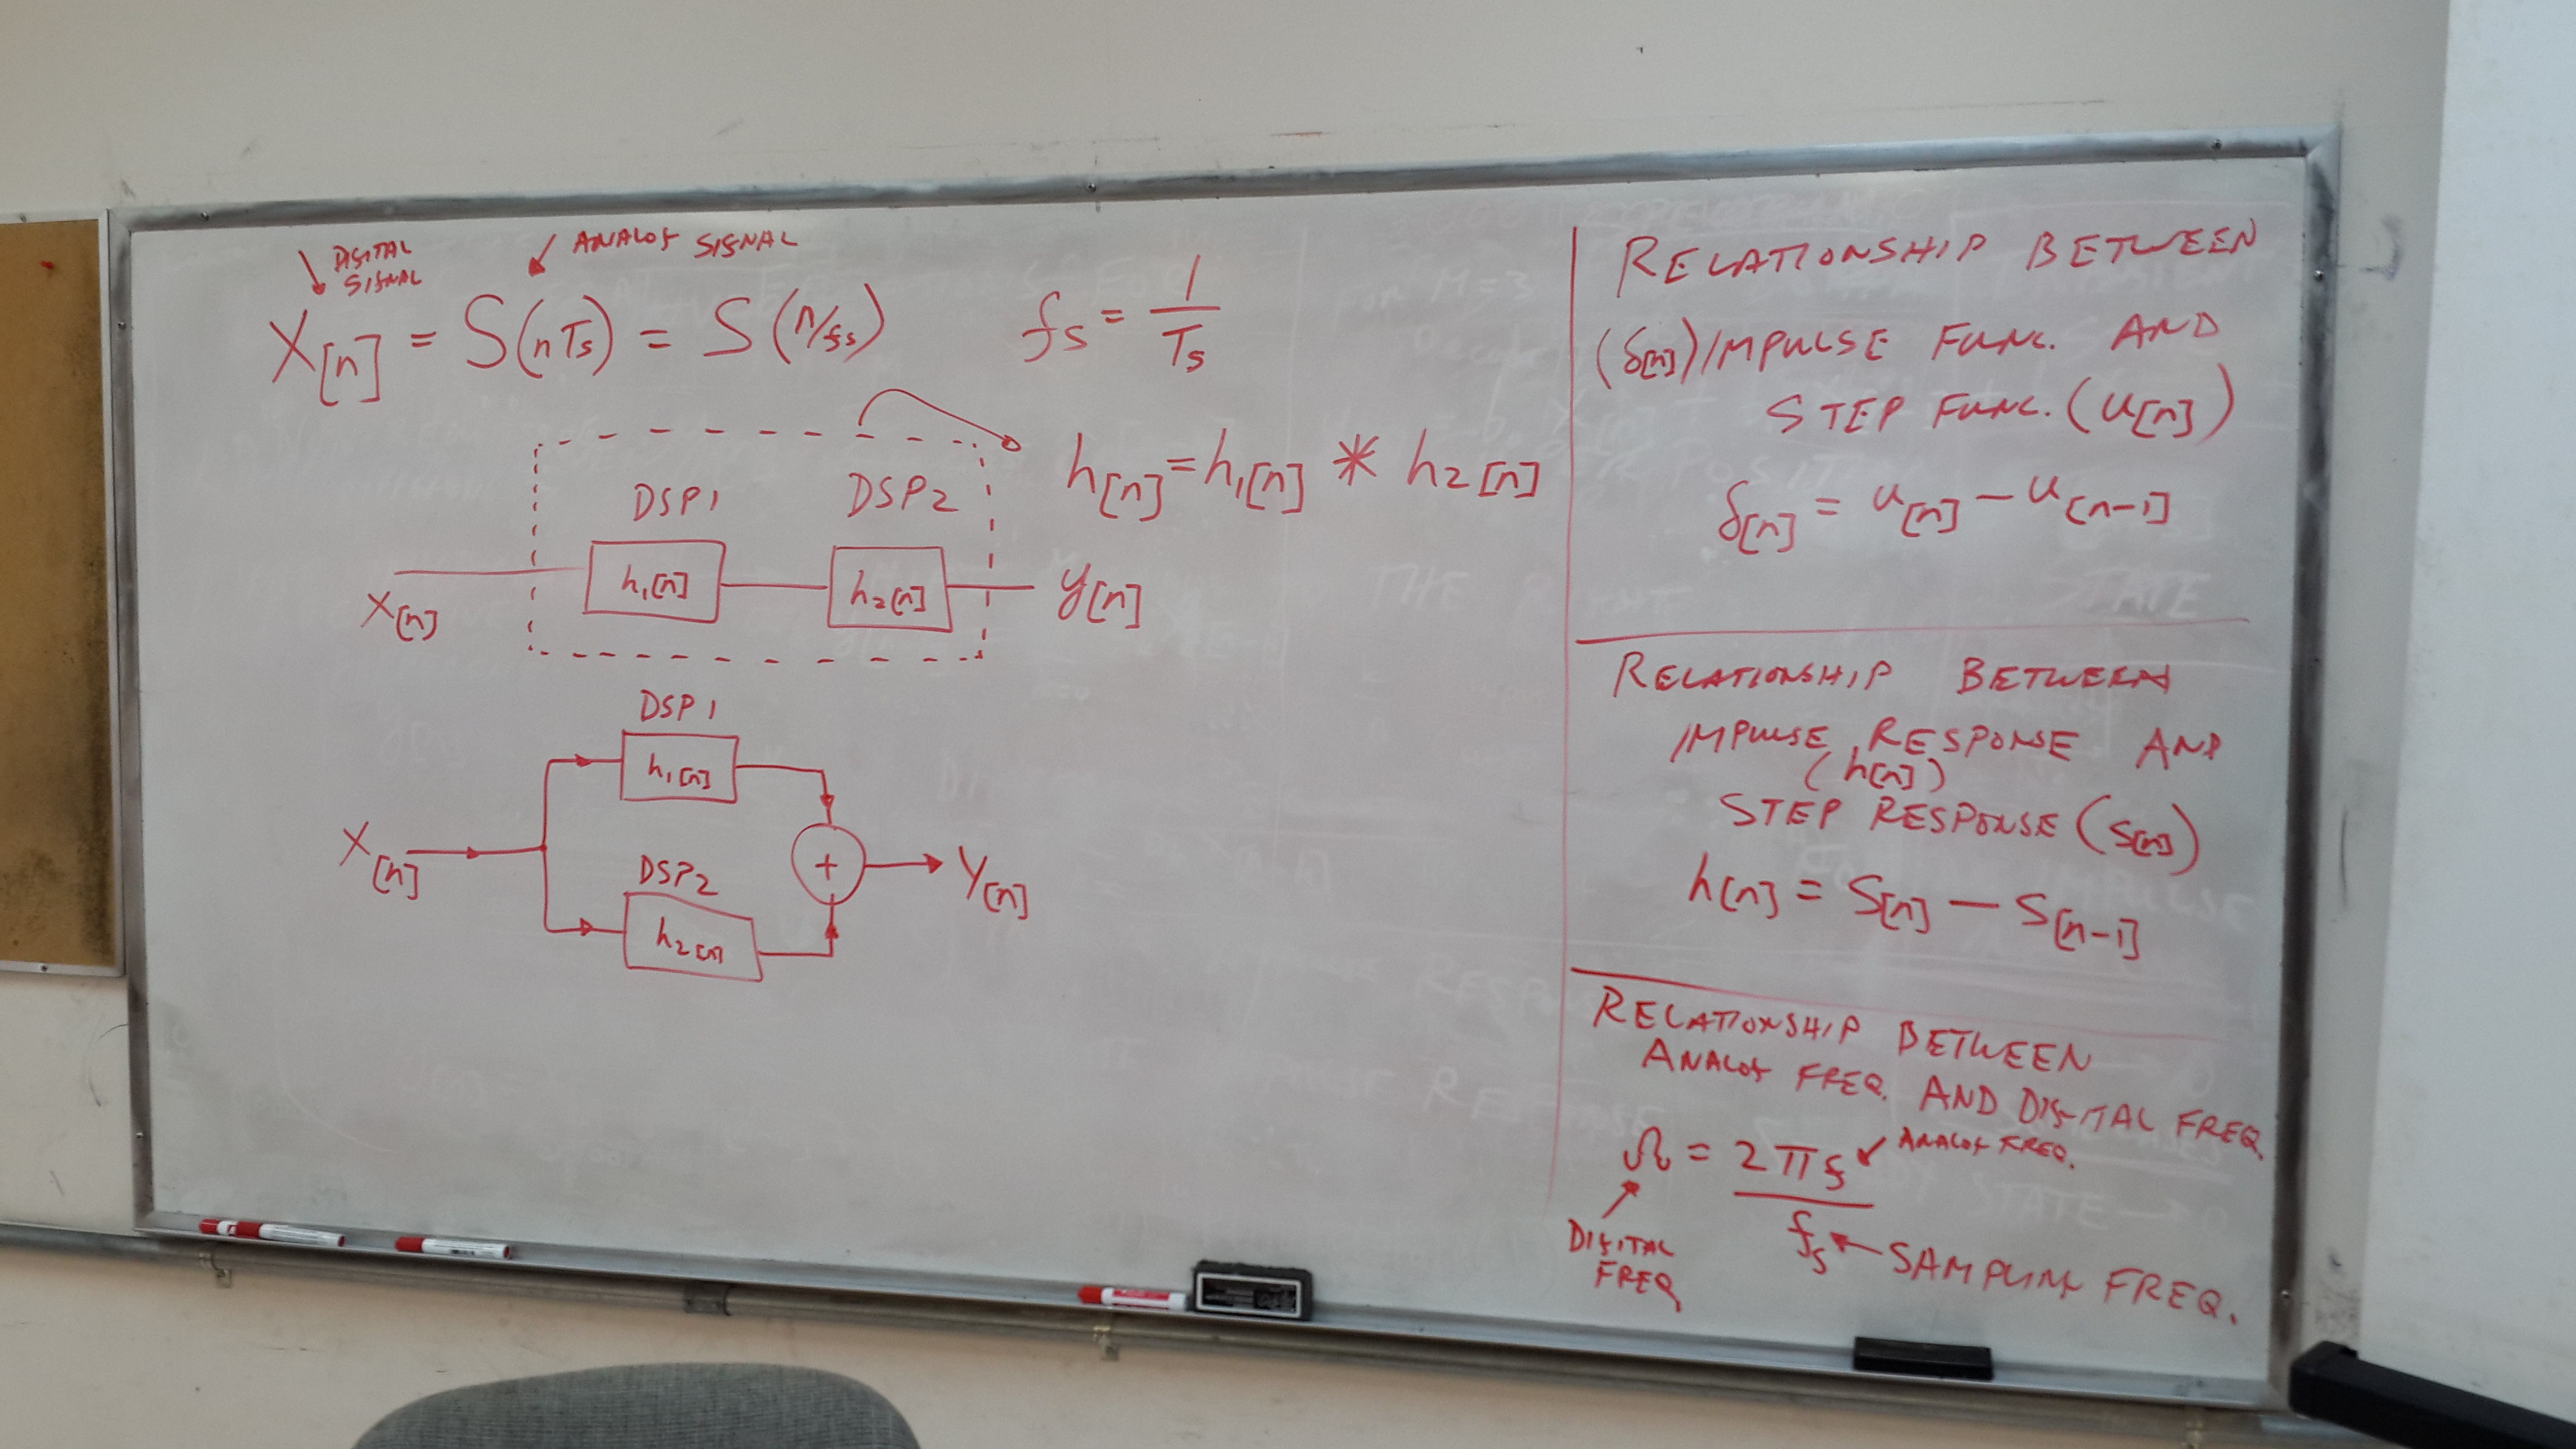 DIGITAL
SIGNAL
ANALOG SIGNAL
X[n] = S(nTs) = S(n/fs)
fs = 1/Ts
h[n] = h1[n] * h2[n]
DSP1
DSP2
X[n]
h1[n]
h2[n]
y[n]
DSP1
h1[n]
X[n]
+
Y[n]
DSP2
h2[n]
RELATIONSHIP BETWEEN
(δ[n]) IMPULSE FUNC. AND
STEP FUNC. (u[n])
δ[n] = u[n] - u[n-1]
RELATIONSHIP BETWEEN
IMPULSE RESPONSE AND
(h[n])
STEP RESPONSE (s[n])
h[n] = S[n] - S[n-1]
RELATIONSHIP BETWEEN
ANALOG FREQ. AND DIGITAL FREQ.
Ω = 2πf / fs
ANALOG FREQ.
DIGITAL
FREQ
SAMPLING FREQ.